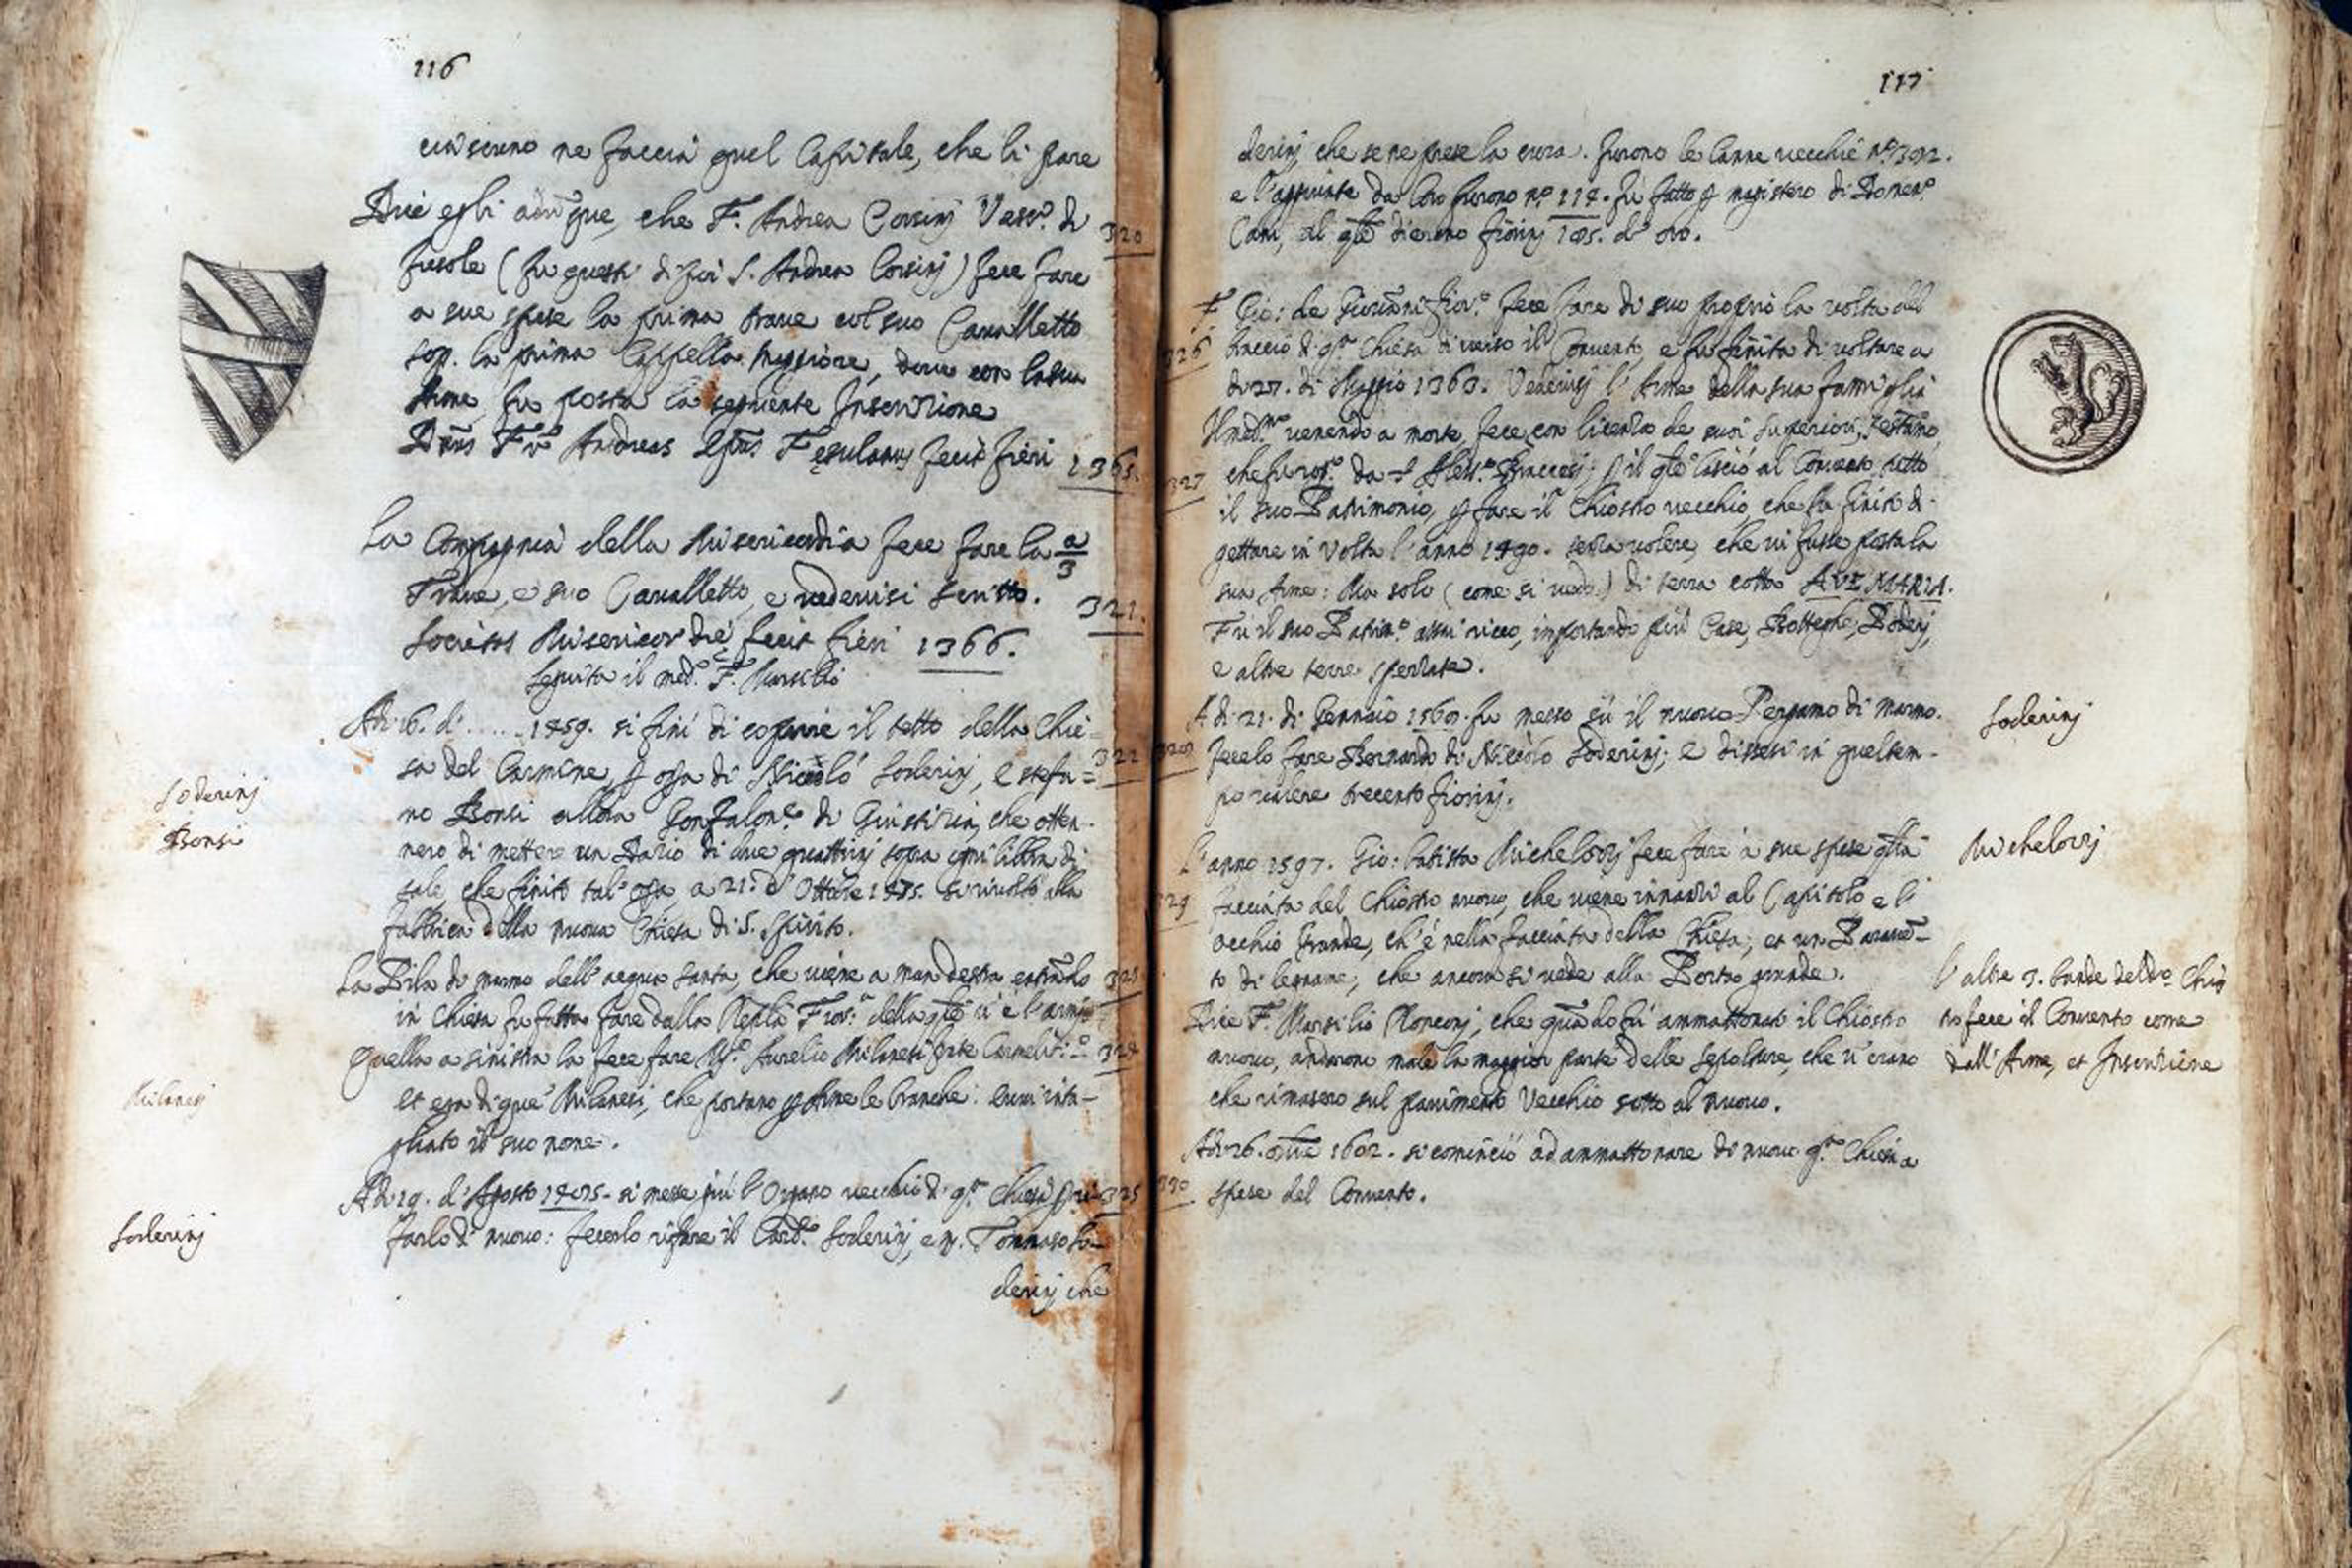 116
ciascuno ne faccia quel Capitale, che li pare
Dice egli adunque, che F. Andrea Corsinj Vesc.º di
320
fiesole (fu questi di poi S. Andrea Corsinj) fece fare
a sue spese la prima trave col suo Cavalletto
sop. la prima Cappella Maggiore, dove con la sua
Arme, fu posta la seguente Inscrizione
Dñs Fr. Andreas Epũs Fesulanus fecit fieri 1365.
La Compagnia della Misericordia fece fare la a/3
Trave, e suo Cavalletto, e vedevisi scritto.
321.
Societas Misericordie fecit fieri 1366.
Seguita il med.º F. Marsilio
Adi 16. di ..... 1459. si finì di coprire il tetto della Chie=
sa del Carmine, p opa di Niccolò Soderinj, e Stefa=
322
no Bonsi allora Gonfalon.e di Giustizia, che otten-
nero di mettere un Dazio di due quattrinj sopra ogni libbra di
sale, che finito tal' opa, a 21. d' Ottobre 1475. si rivoltò alla
fabbrica della nuova Chiesa di S. Spirito.
Soderinj
Bonsi
La Pila di marmo dell' acqua santa, che viene a man destra entrando
323
in Chiesa fu fatta fare dalla Nobiltà Fior.ª della qle vi è l'arme
Quella a sinistra la fece fare M.º Aurelio Milanesi frate Carmelit.º
324
et era di que' Milanesi, che portano p Arme le branche: euui inta-
gliato il suo nome.
Milanesi
Adi 19. d' Agosto 1475. si messe giù l'Organo vecchio di q.ª Chiesa p ri-
325
farlo di nuovo: fecerlo rifare il Card.e Soderinj, e M. Tommaso So-
Soderinj
derinj che
117
derinj che se ne prese la cura. furono le Canne vecchie nº 1392.
e l'aggiunte da loro furono nº 114. fu fatto p magistero di Domen.º
Cani, al qle dierono fiorinj 185. d' oro.
F. Gio: de Giovani fior.º fece fare di suo proprio la volta del
326
braccio di q.ª Chiesa di verso il Convento, e fu finita di voltare a
dì 27. di Maggio 1363. Vedevisj l'Arme della sua famiglia
Il med.mo venendo a morte, fece con licenza de suoi Superiori, Testam.º
327
che fu rog.º da S. Aless.º Braccesi; p il qle lasciò al Convento tutto
il suo Patrimonio, p fare il Chiostro vecchio, che fu finito di
gettare in Volta l'anno 1490. senza volere, che vi fusse posta la
sua Arme: Ma solo (come si vede) di terra cotta AVE MARIA.
Fu il suo Patrim.º assai ricco, importando più Case, Botteghe, Poderj,
e altre terre spezzate.
A dì 21. di Gennaio 1569. fu messo sù il nuovo Pergamo di marmo.
328
fecelo fare Bernardo di Niccolò Soderinj; e dissesi in quel tem-
po venne trecento fiorinj.
Soderinj
L'anno 1597. Gio: batista Michelozzj fece fare a sue spese qlla
329
facciata del Chiostro nuovo, che viene innanzi al Capitolo e l'
occhio Grande, ch'è nella facciata della Chiesa, et un Paramē-
to di legname, che ancora si vede alla Porta grande.
Michelozzj
l' altre 3. bande del d.º Chio
stro fece il Convento come
dall' Arme, et Inscrizione
Dice F. Marsilio Ronconj, che quãdo fu ammattonato il Chiostro
nuovo, andarono male la maggior parte delle sepolture, che v'erano
che rimasero sul pavimento Vecchio sotto al nuovo.
Adi 26. 8bre 1602. si cominciò ad ammattonare di nuovo q.ª Chiesa a
330
spese del Convento.